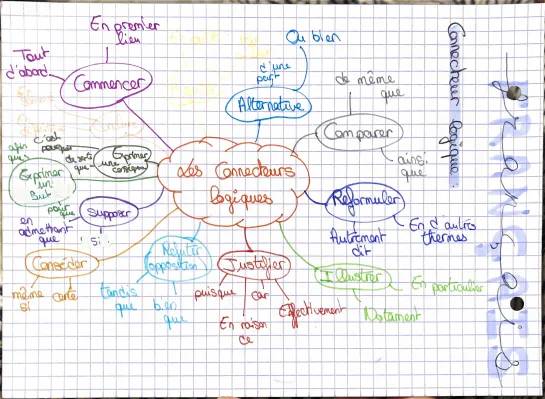 En premier
lieu
Tout
d'abord
Commencer
Ou bien
d'une
part
Alternative
de même
que
Comparer
ainsi
que
Connecteur logique :
Français
Les Connecteurs
logiques
c'est
pourquoi
de sorte
que
Exprimer
une
afin
que
Exprimer
un
but
pour
que
Supposer
en
admettant
que
si
Concéder
même
si
certe
opposition
tandis
que
bien
que
Justifier
puisque
car
En raison
de
Effectivement
Reformuler
Autrement
dit
En d'autres
thermes
Illustrer
En particulier
Notament